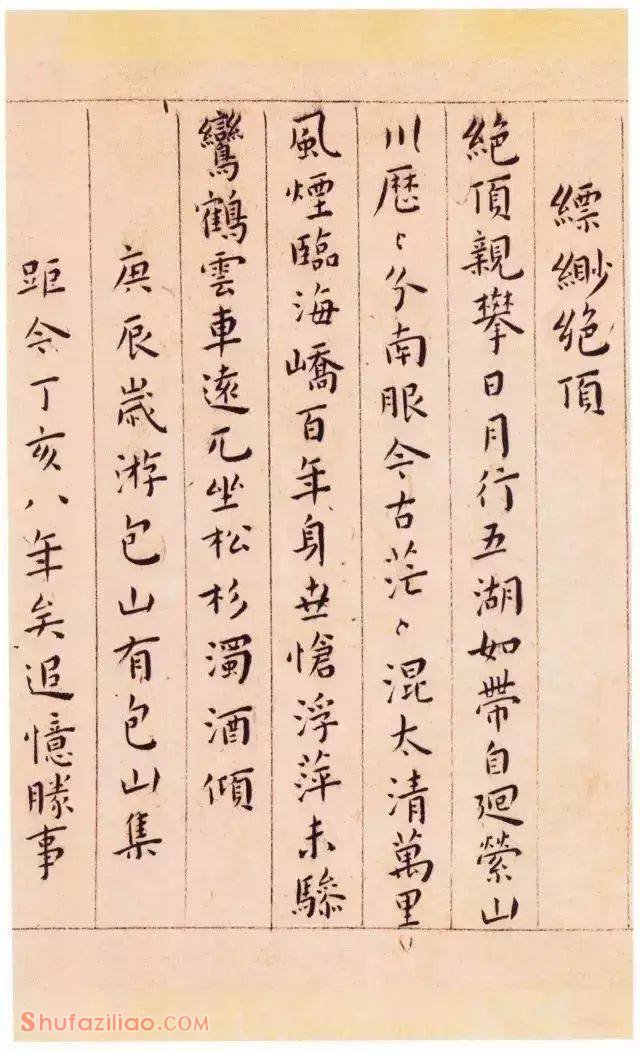 縹緲絶頂
絶頂親攀日月行五湖如帶自廻縈山
川歷〻分南眼今古茫〻混太清萬里
風煙臨海嶠百年身世愴浮萍未驂
鸞鶴雲車遠兀坐松杉濁酒傾
庚辰歲游包山有包山集
距今丁亥八年矣追憶勝事
Shufaziliao.COM